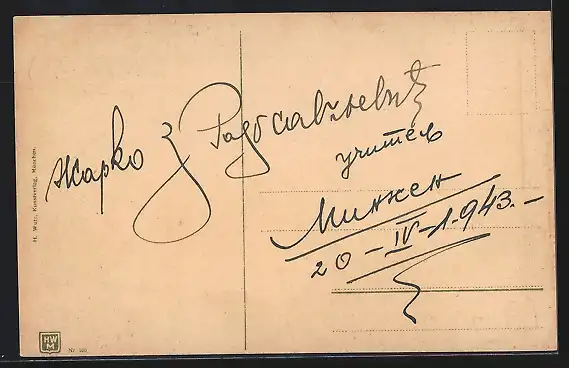 Жарко З Радосављевић
учитељ
Минхен
20-IV-1.943.-
H. Wutz, Kunstverlag, München.
HW
M
Nr.